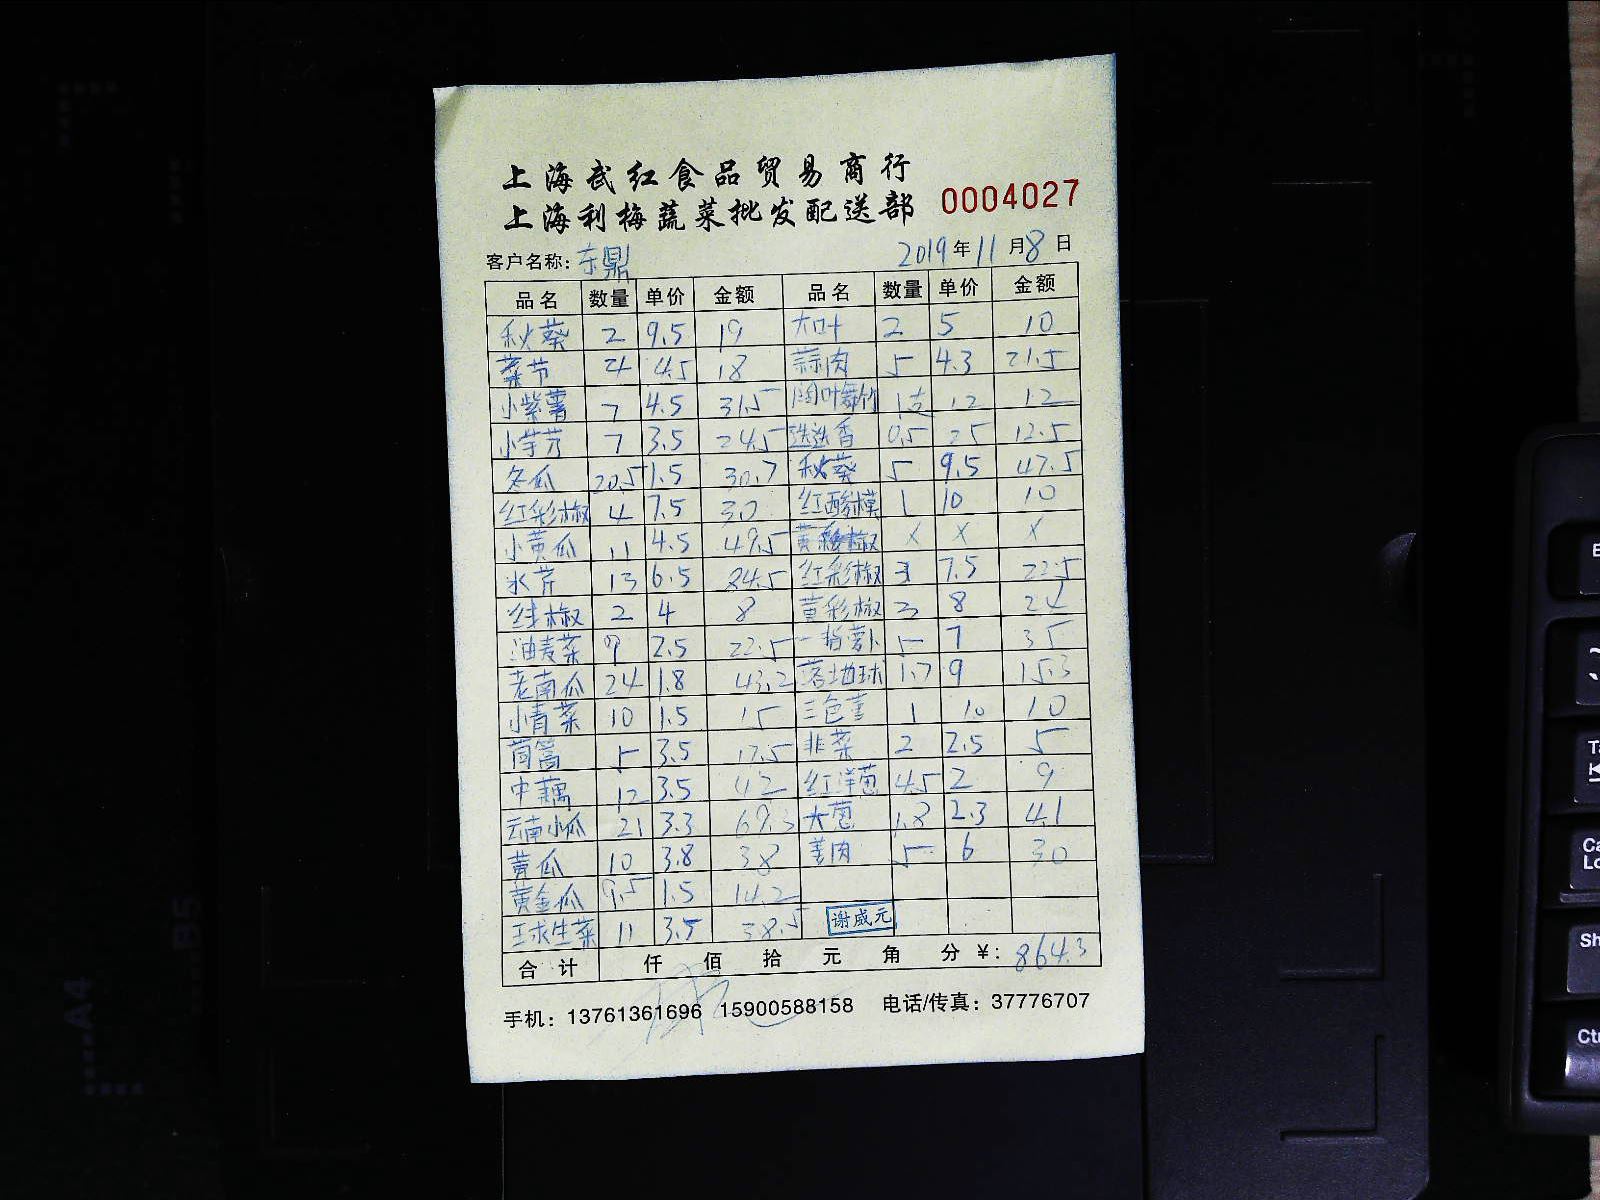 上海武红食品贸易商行
上海利梅蔬菜批发配送部 0004027
客户名称: 东鼎 2019年11月8日
品名 数量 单价 金额 品名 数量 单价 金额
秋葵 2 9.5 19 大叶 2 5 10
菜节 4 4.5 18 蒜肉 5 4.3 21.5
小紫薯 7 4.5 31.5 1支 12 12
小芋艿 7 3.5 24.5 迷迭香 0.5 25 12.5
冬瓜 20.5 1.5 30.7 秋葵 5 9.5 47.5
红彩椒 4 7.5 30 红酸模 1 10 10
小黄瓜 11 4.5 49.5 黄彩椒 x x x
水芹 13 6.5 84.5 红彩椒 3 7.5 22.5
线椒 2 4 8 黄彩椒 3 8 24
油麦菜 9 2.5 22.5 萝卜 5 7 35
老南瓜 24 1.8 43.2 落地球 1.7 9 15.3
小青菜 10 1.5 15 三色堇 1 10 10
茼蒿 5 3.5 17.5 韭菜 2 2.5 5
中藕 12 3.5 42 红洋葱 4.5 2 9
云南小瓜 21 3.3 69.3 大葱 1.8 2.3 4.1
黄瓜 10 3.8 38 姜肉 5 6 30
黄金瓜 9.5 1.5 14.2
球生菜 11 3.5 38.5 谢威元
合计 仟 佰 拾 元 角 分 ¥: 864.3
手机: 13761361696 15900588158 电话/传真: 37776707
B5
A4